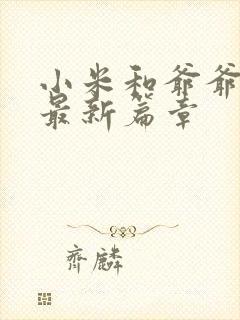 小米和爷爷
最新篇章
齐麟